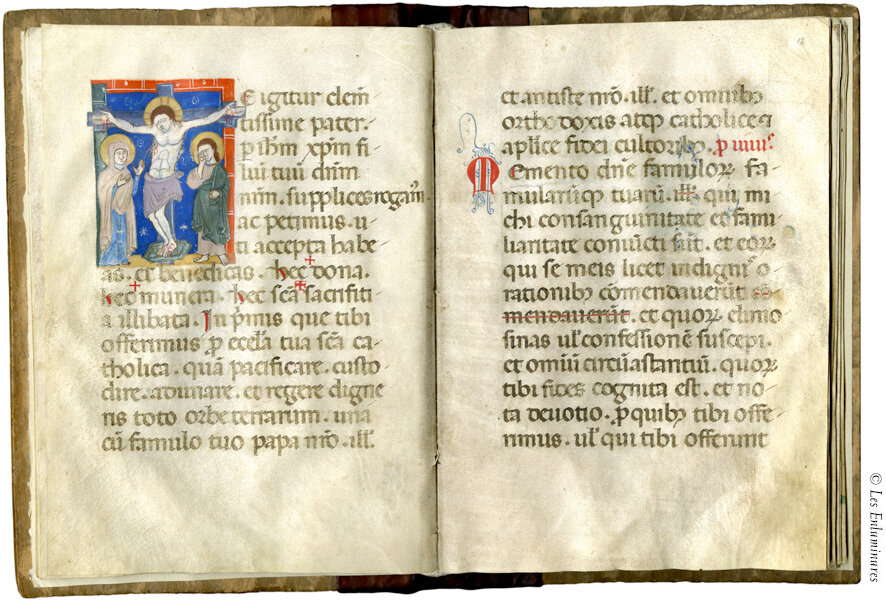 E igitur clem̄
tissime pater.
p ih̄m xp̄m fi
lium tuum dn̄m
nr̄m. supplices rogam̄.
ac petimus. u
ti accepta habe
as. et benedicas. hec dona.
hec munera. hec sc̄a sacrifiti
a illibata. In p̄mis que tibi
offerimus p̄ eccl̄a tua sc̄a ca
tholica. quā pacificare. custo
dire. adunare. et regere digne
ris toto orbe terrarum. una
cū famulo tuo papa nr̄o. ill̄.
12
et antiste nr̄o. ill̄. et omnibꝫ
orthodoxis atqꝫ catholice ⁊
aplice fidei cultoribꝫ. p uiuis
Memento dn̄e famuloꝝ fa
mularūqꝫ tuarū. ill̄. qui mi
chi consanguinitate et fami
liaritate coniūcti sūt. et eoꝝ
qui se meis licet indignis o
rationibꝫ cōmendauerūt cō
mendauerūt. et quoꝝ elimo
sinas ul̄ confessionē suscepi.
et omiū circūastantiū. quoꝝ
tibi fides cognita est. et no
ta deuotio. p quibꝫ tibi offe
rimus. ul̄ qui tibi offerunt
© Les Enluminures